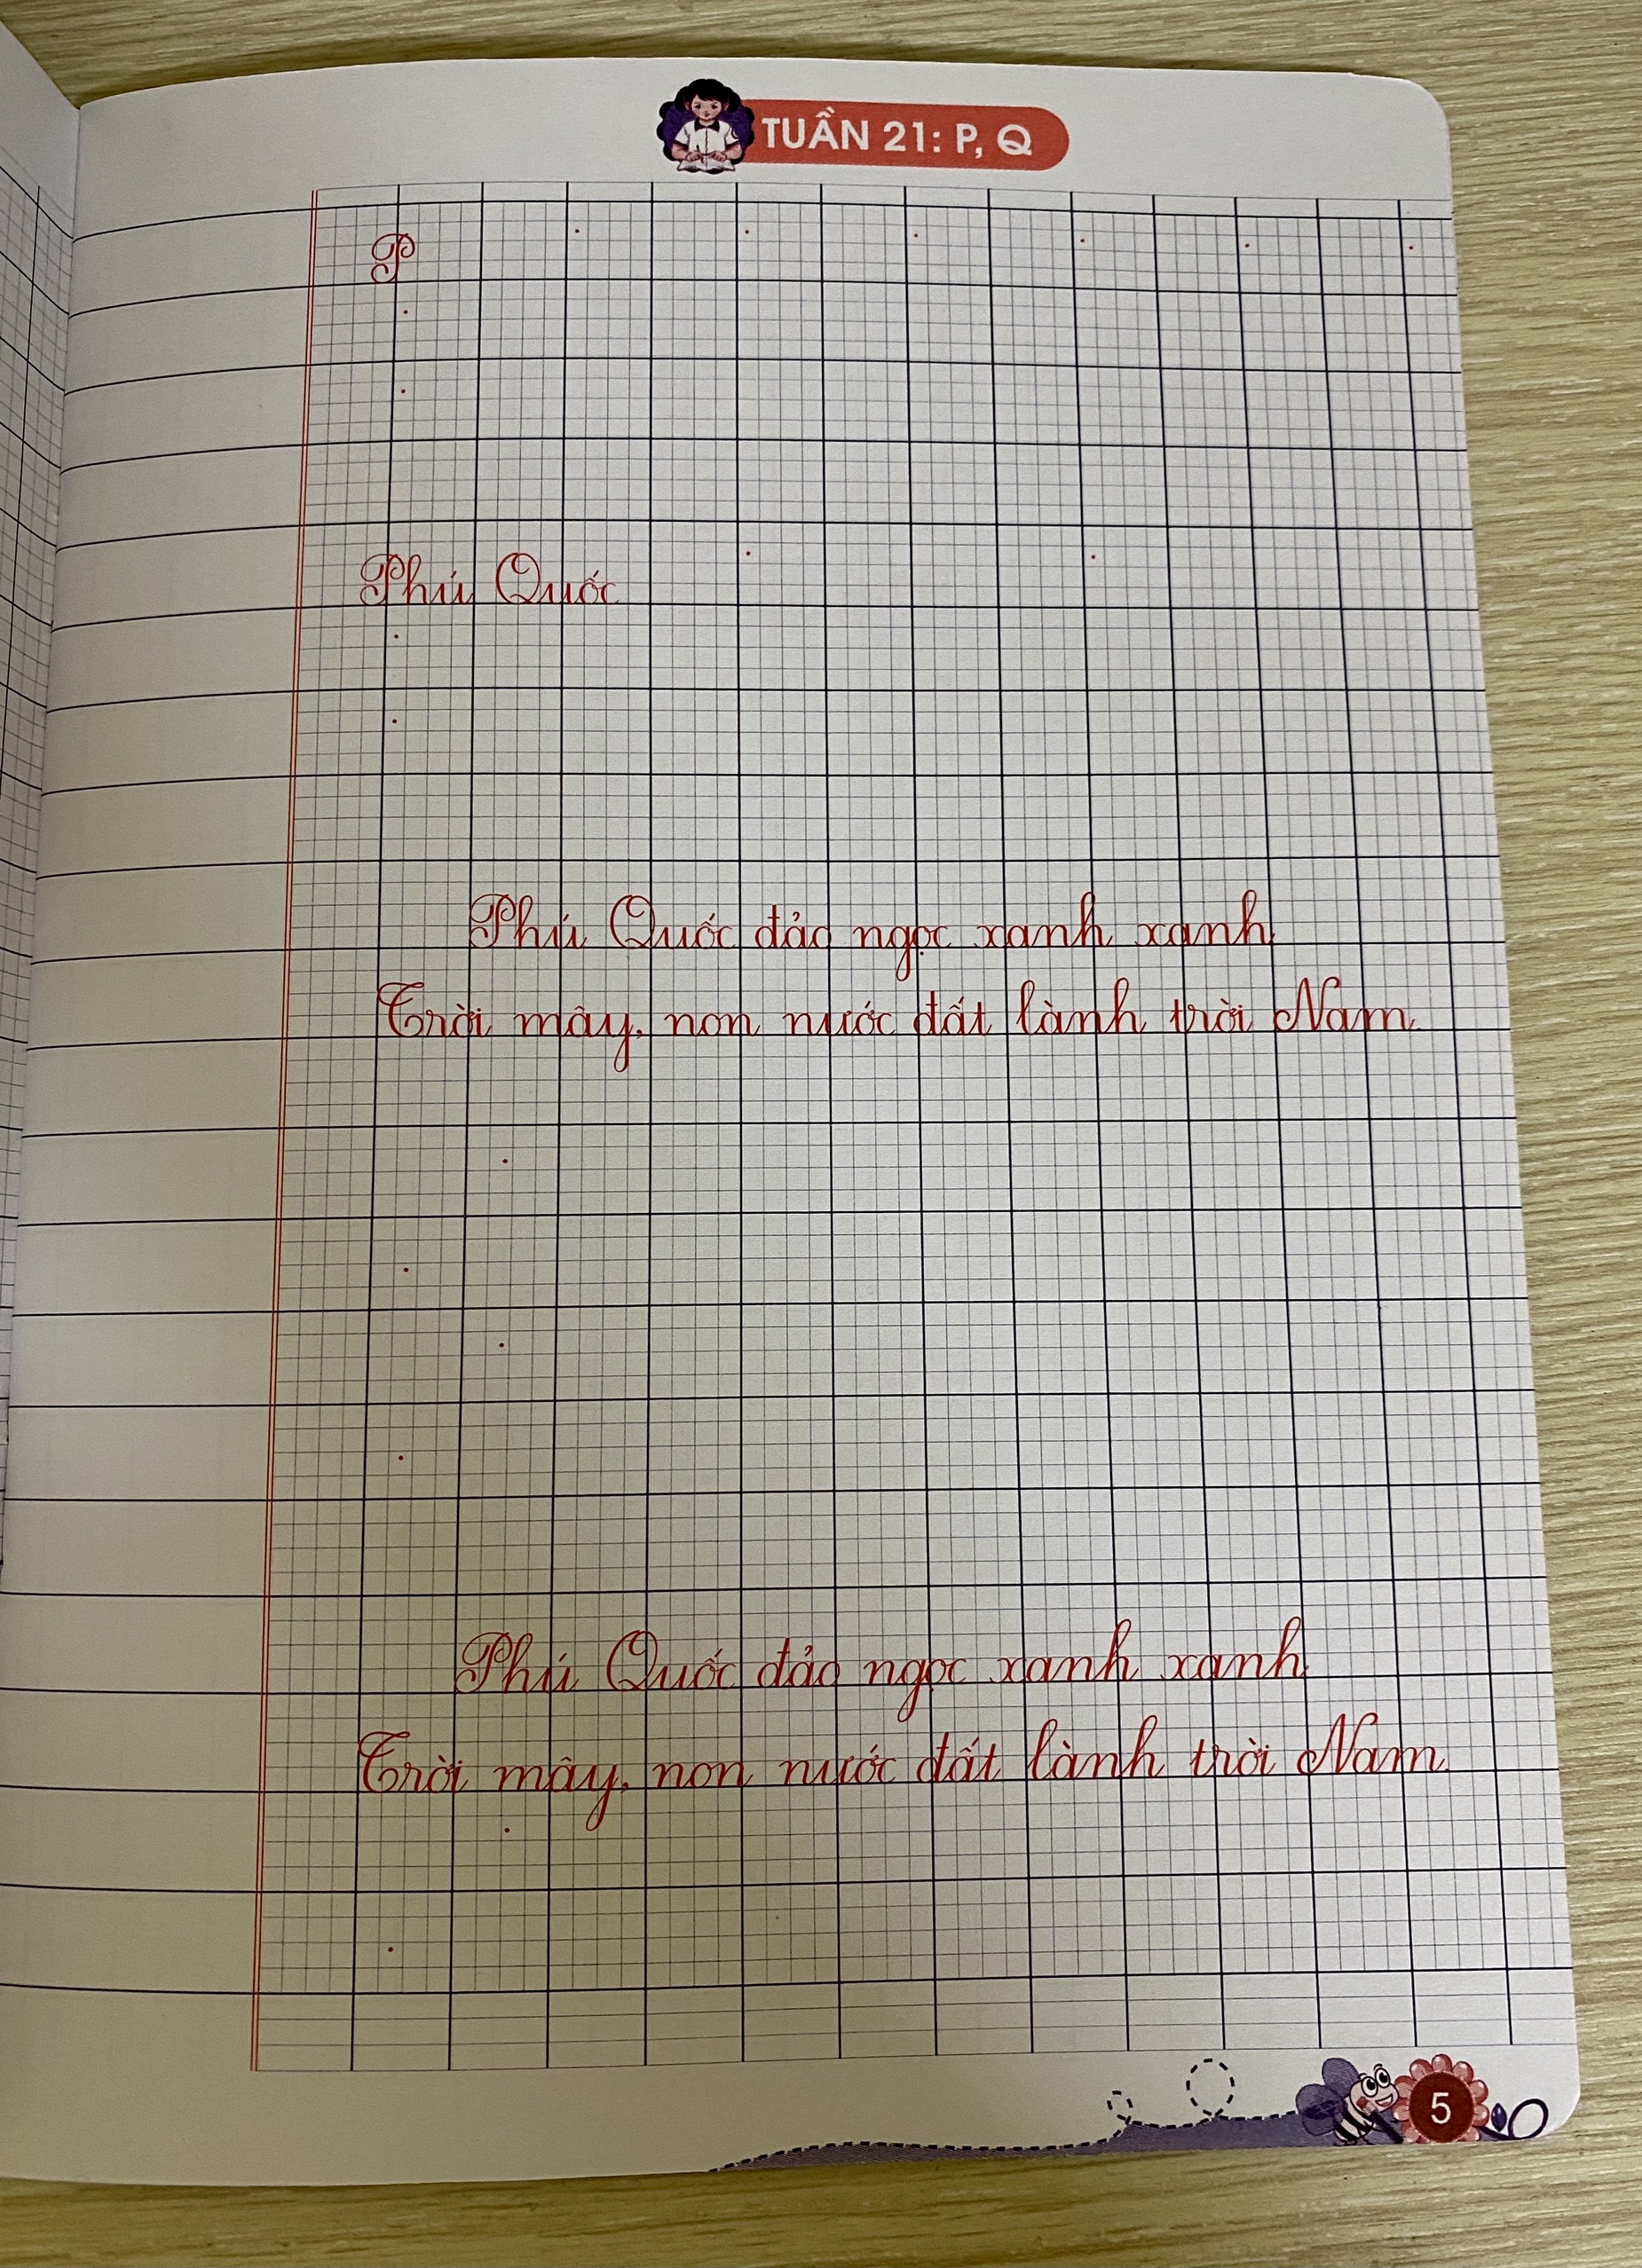 TUẦN 21: P, Q
P
Phú Quốc
Phú Quốc đảo ngọc xanh xanh
Trời mây, non nước đất lành trời Nam.
Phú Quốc đảo ngọc xanh xanh
Trời mây, non nước đất lành trời Nam.
5